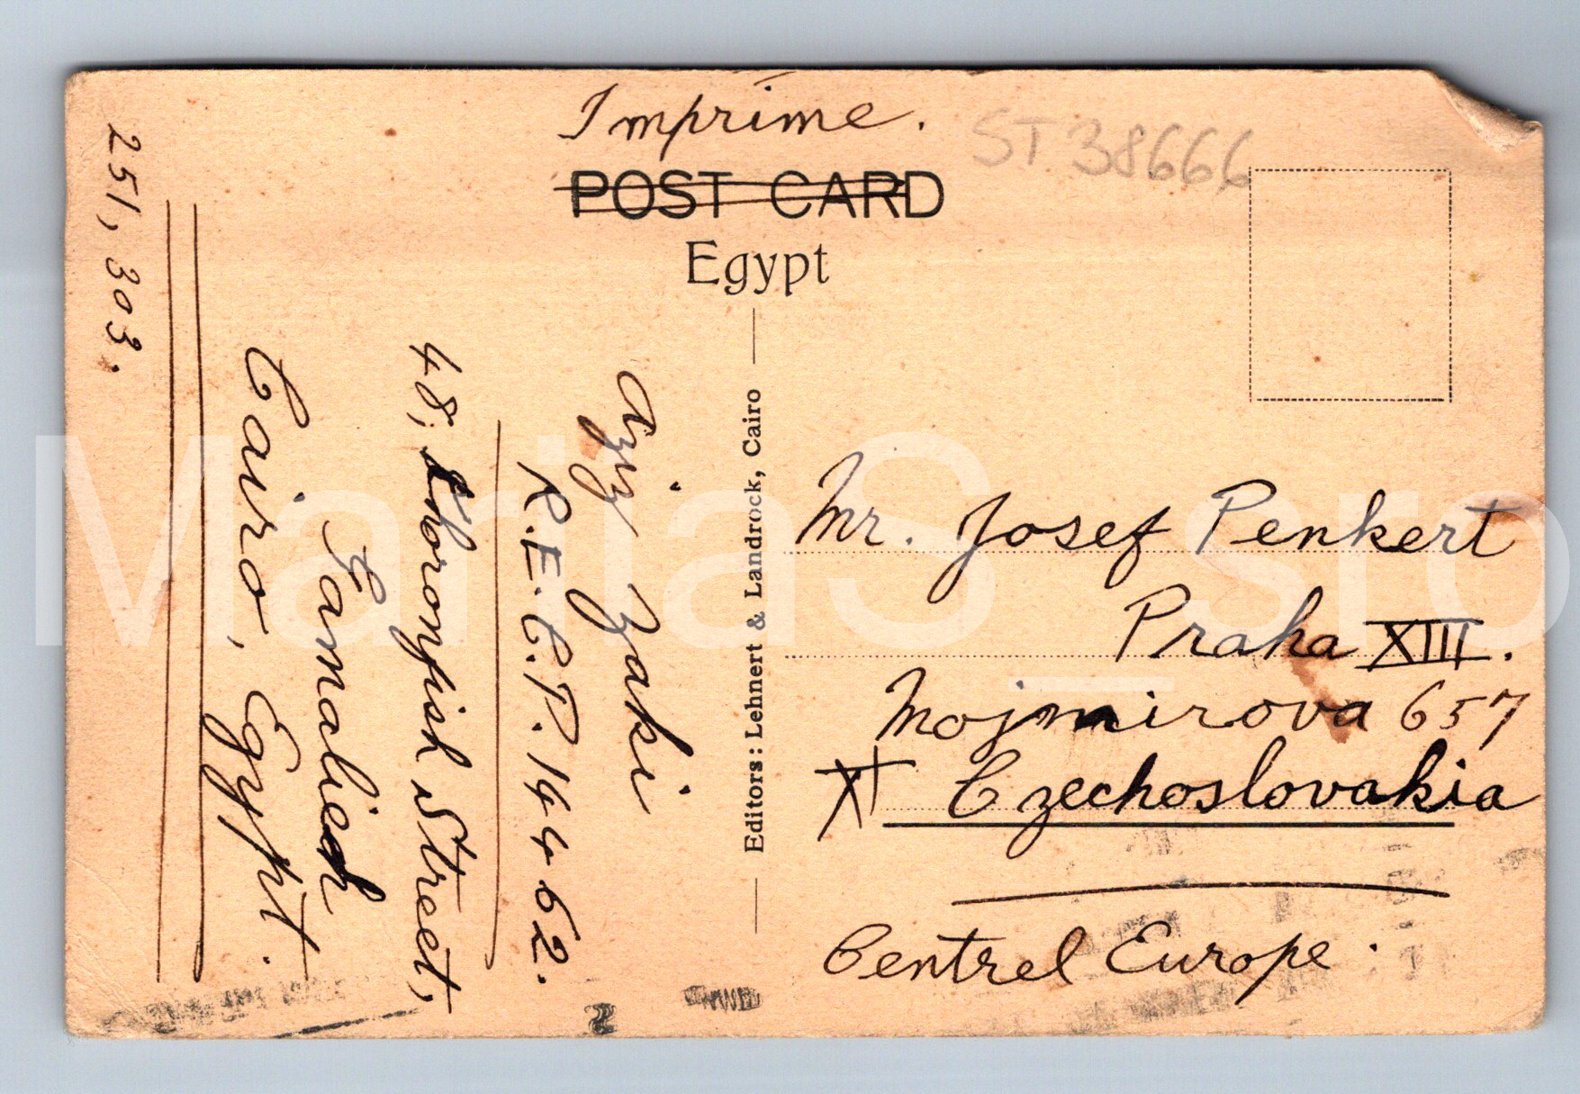 Imprime.
POST CARD
Egypt
ST 38666
Aziz Zaki
R.E.C.P. 14462.
48, Khoronfish Street,
Gamalieh
Cairo, Egypt.
251,303.
Editors: Lehnert & Landrock, Cairo
Mr. Josef Penkert
Praha XIII.
Mojmirova 657
XI Czechoslovakia
Centrel Europe.
MariaS_sro